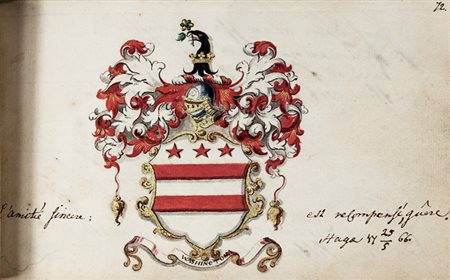 72.
l'amitié sincere: est recompensé, guêre!
Haga 29/5 66.
WASHINGTON